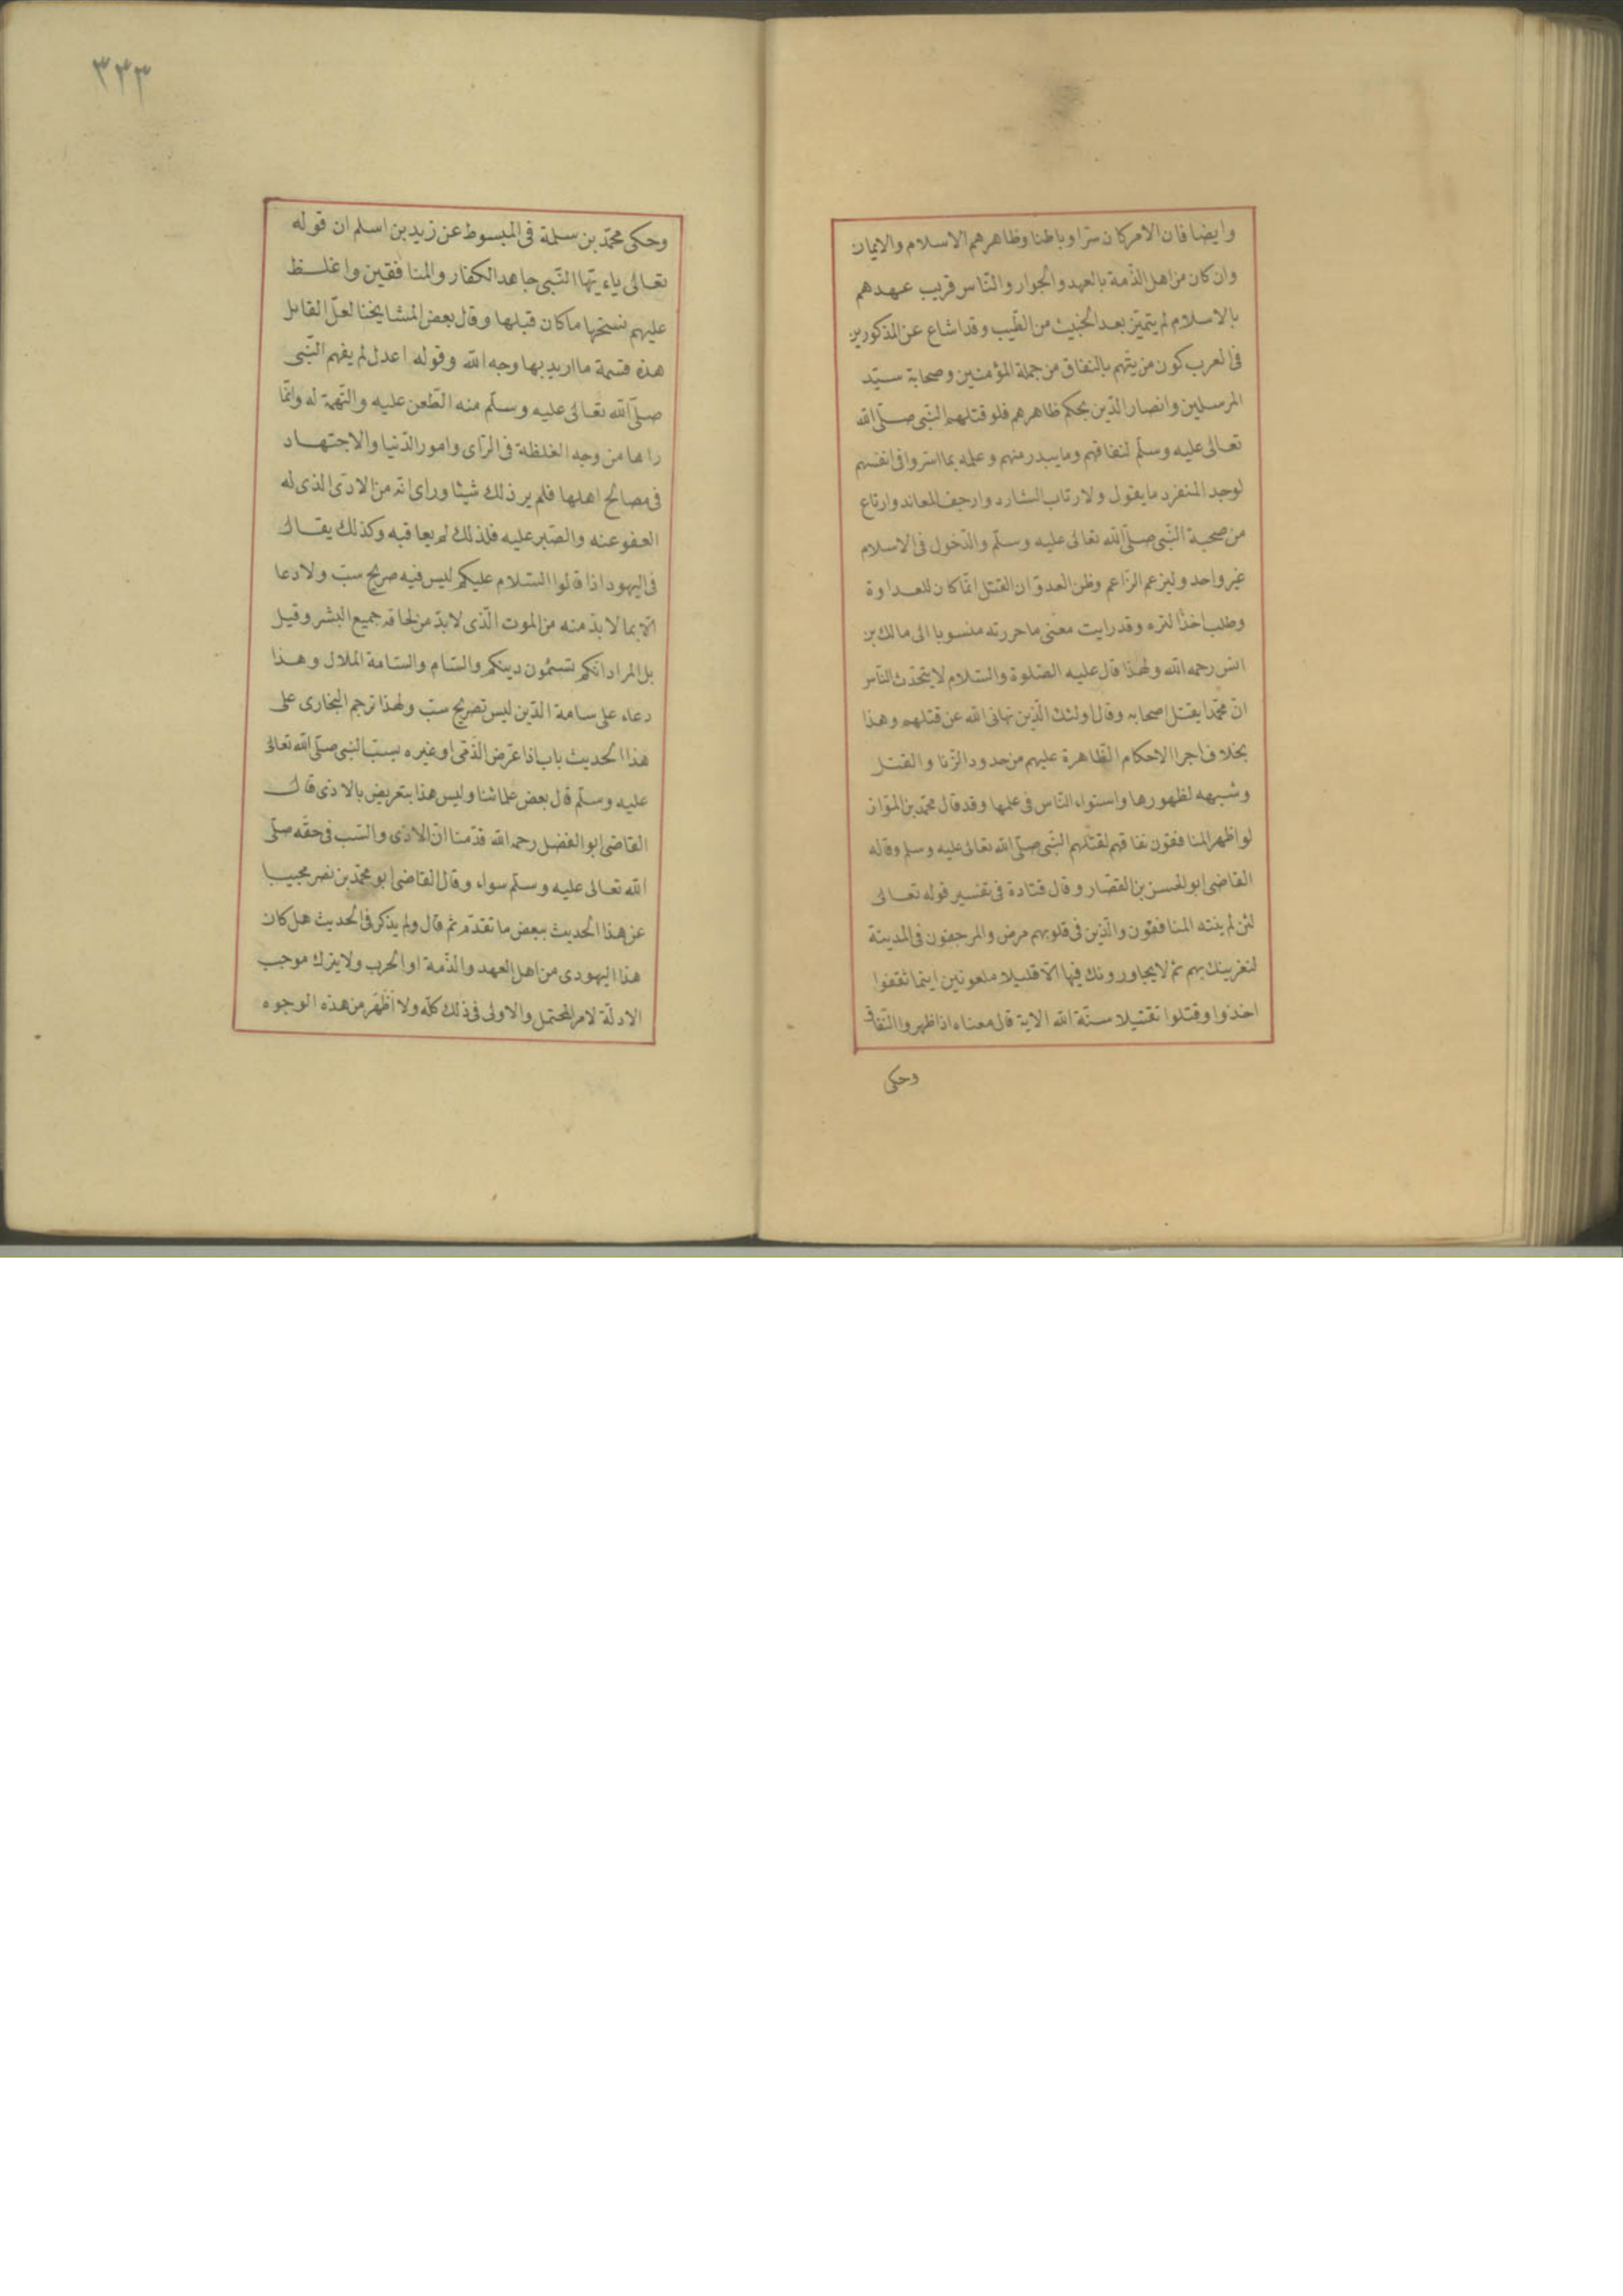 وايضا فان الامر كان سرا وباطنا وظاهرهم الاسلام والايمان
وان كان من اهل الذمة بالعهد والجوار والناس قريب عهدهم
بالاسلام لم يتميز بعد الخبيث من الطيب وقد اشاع عن المذكورين
فى العرب كون من يتهم بالنفاق من جملة المؤمنين وصحابة سيد
المرسلين وانصار الدين بحكم ظاهرهم فلو قتلهم النبى صلى الله
تعالى عليه وسلم لنفاقهم وما يبدر منهم وعلمه بما اسروا فى انفسهم
لوجد المنفرد ما يقول ولارتاب الشارد وارجف المعاند وارتاع
من صحبة النبى صلى الله تعالى عليه وسلم والدخول فى الاسلام
غير واحد ولیزعم الزاعم وظن العدو ان القتل انما كان للعداوة
وطلب اخذ الترة وقد رايت معنى ما حررته منسوبا الى مالك بن
انس رحمه الله ولهذا قال عليه الصلوة والسلام لا يتحدث الناس
ان محمدا يقتل اصحابه وقال اولئك الذين نهانى الله عن قتلهم وهذا
بخلاف اجرا الاحكام الظاهرة عليهم من حدود الزنا والقتل
وشبهه لظهورها واستواء الناس فى علمها وقد قال محمد بن المواز
لو اظهر المنافقون نفاقهم لقتلهم النبى صلى الله تعالى عليه وسلم وقاله
القاضى ابو الحسن بن القصار وقال قتادة فى تفسير قوله تعالى
لئن لم ينته المنافقون والذين فى قلوبهم مرض والمرجفون فى المدينة
لنغرينك بهم ثم لا يجاورونك فيها الا قليلا ملعونين اينما ثقفوا
اخذوا وقتلوا تقتيلا سنة الله الاية قال معناه اذا اظهروا النفاق
وحكى
٣٣٣
وحكى محمد بن سلمة فى المبسوط عن زيد بن اسلم ان قوله
تعالى ياءيتها النبى جاهد الكفار والمنافقين واغلظ
عليهم نسختها ما كان قبلها وقال بعض المشايخنا لعل القائل
هذه قسمة ما اريد بها وجه الله وقوله اعدل لم يفهم النبى
صلى الله تعالى عليه وسلم منه الطعن عليه والتهمة له وانما
راها من وجه الغلظة فى الراى وامور الدنيا والاجتهاد
فى مصالح اهلها فلم ير ذلك شيئا وراى انه من الاذى الذى له
العفو عنه والصبر عليه فلذلك لم يعاقبه وكذلك يقال
فى اليهود اذا قالوا السلام عليكم ليس فيه صريح سب ولا دعا
الا بما لا بد منه من الموت الذى لا بد من لحاقه جميع البشر وقيل
بل المراد انكم تسئمون دينكم والسام والسامة الملال وهذا
دعاء على سامة الدين ليس تصريح سب ولهذا ترجم البخارى على
هذا الحديث باب اذا عرض الذمى او غيره بسب النبى صلى الله تعالى
عليه وسلم قال بعض علمائنا وليس هذا بتعريض بالاذى قال
القاضى ابو الفضل رحمه الله قدمنا ان الاذى والسب فى حقه صلى
الله تعالى عليه وسلم سواء وقال القاضى ابو محمد بن نصر مجيبا
عن هذا الحديث ببعض ما تقدم ثم قال ولم يذكر فى الحديث هل كان
هذا اليهودى من اهل العهد والذمة او الحرب ولا يترك موجب
الادلة لامر المحتمل والاولى فى ذلك كله ولا اظهر من هذه الوجوه